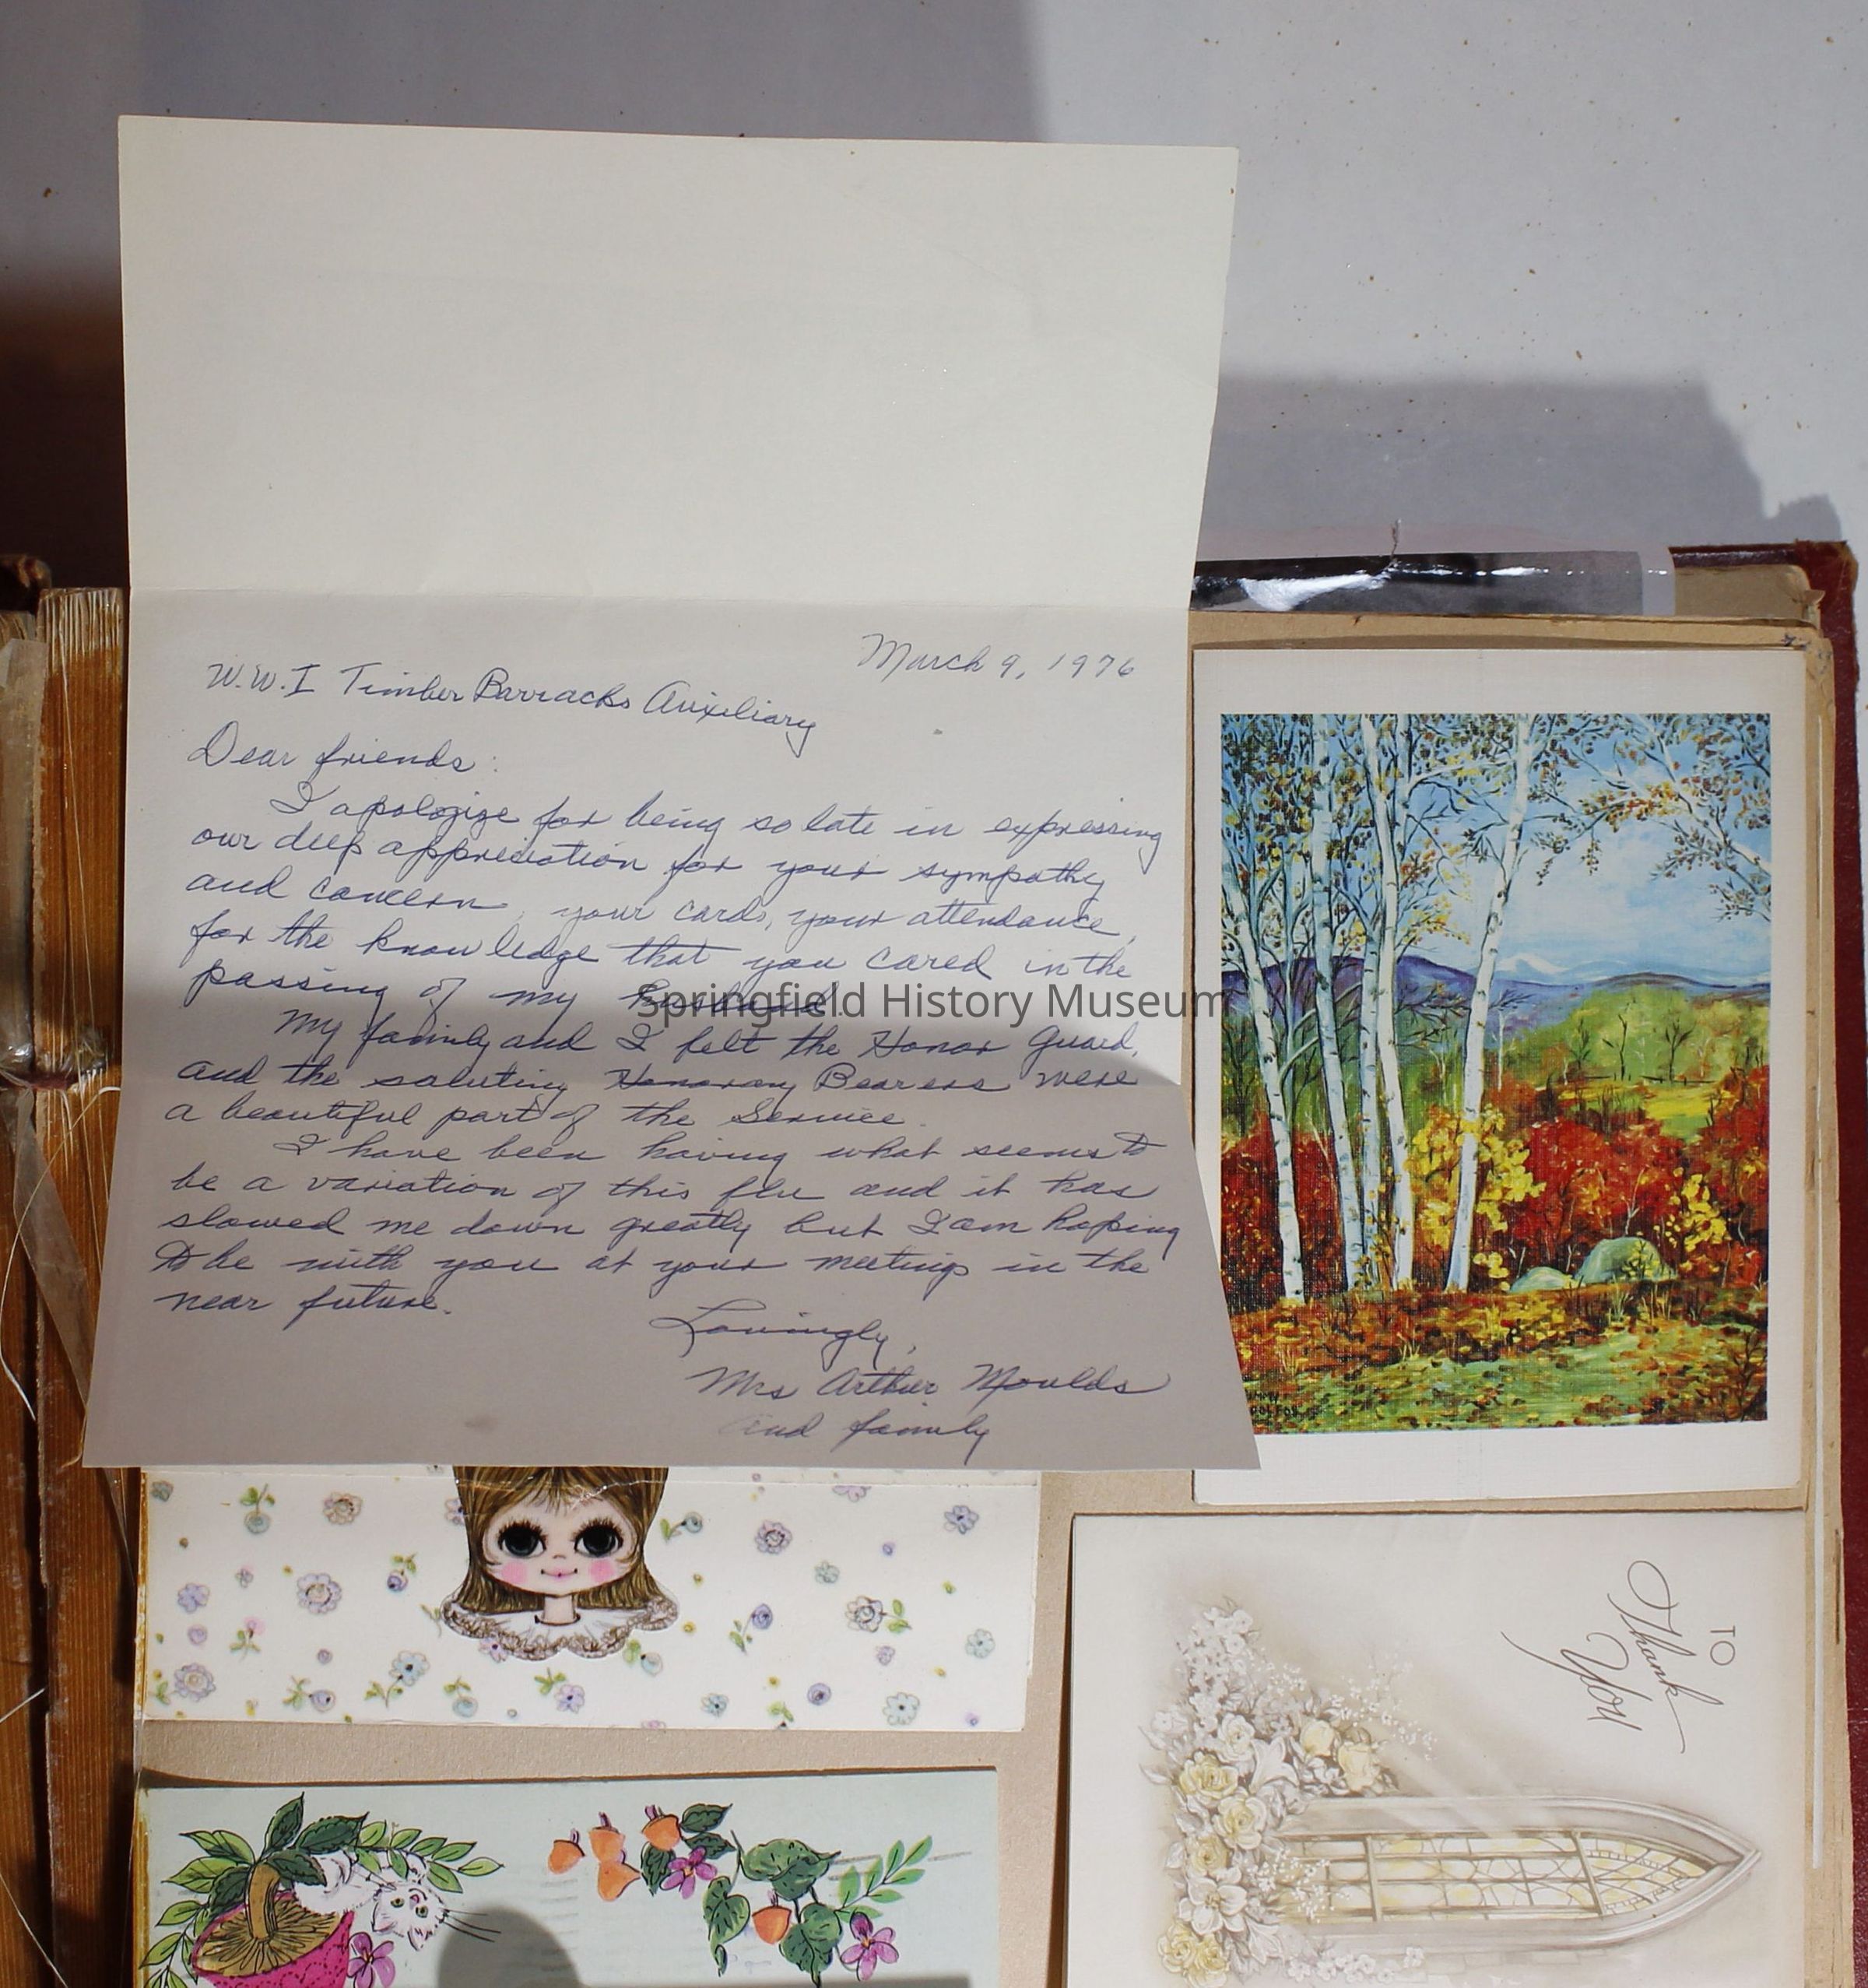 March 9, 1976
W.W.I Timber Barracks Auxiliary
Dear friends:
I apologize for being so late in expressing
our deep appreciation for your sympathy
and concern, your cards, your attendance,
for the knowledge that you cared in the
passing of my husband.
Springfield History Museum
My family and I felt the Honor Guard,
and the saluting Honorary Bearers were
a beautiful part of the Service.
I have been having what seems to
be a variation of this flu and it has
slowed me down greatly but I am hoping
to be with you at your meetings in the
near future.
Lovingly,
Mrs Arthur Moulds
and family
TO
Thank
You